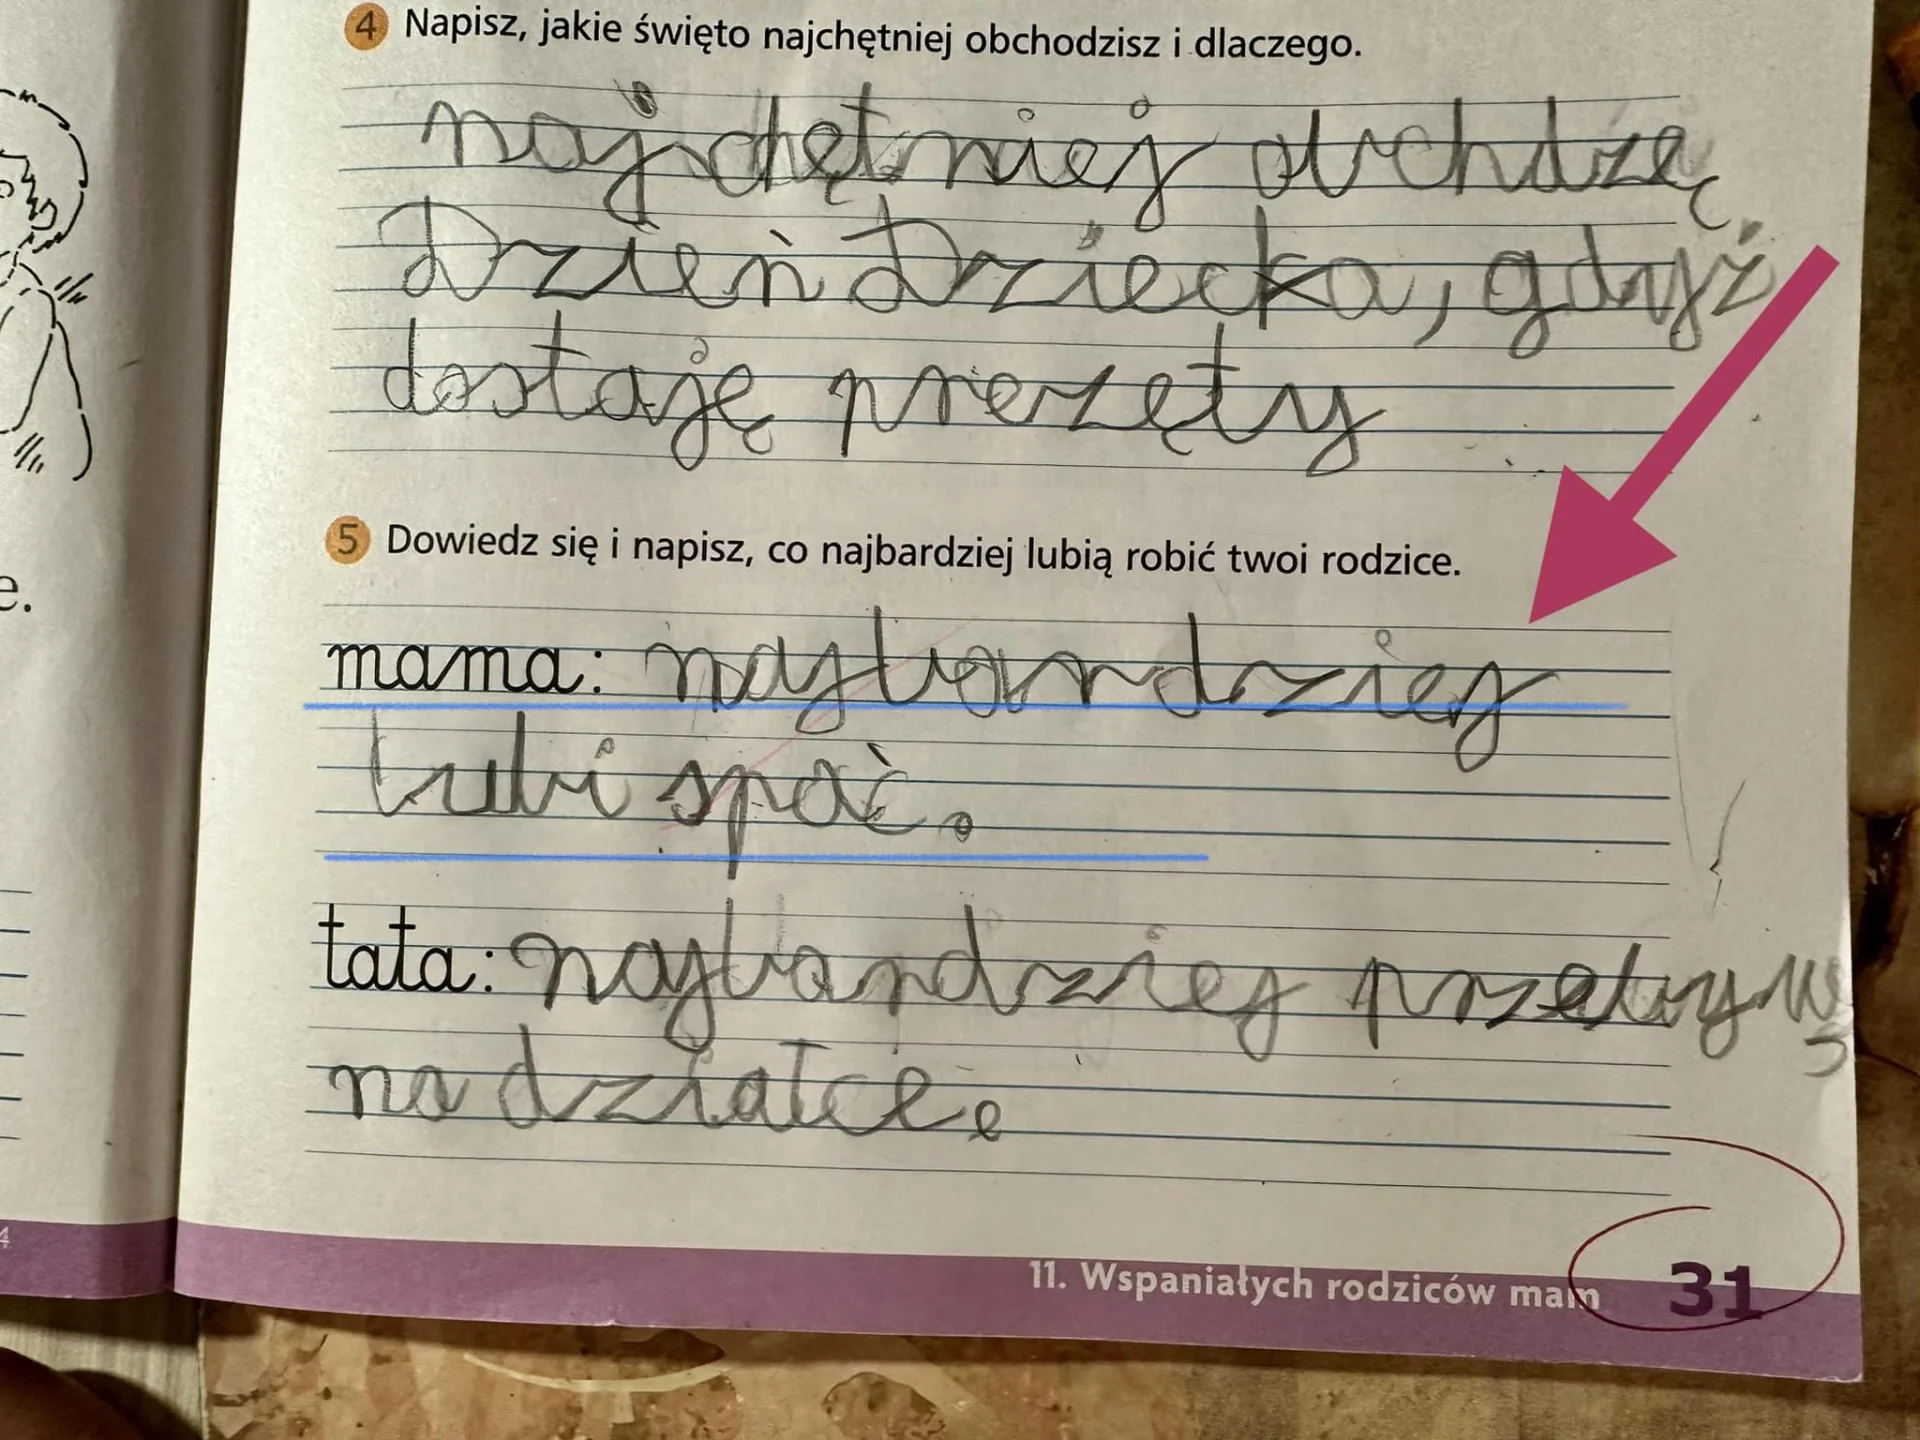 4 Napisz, jakie święto najchętniej obchodzisz i dlaczego.
najchętniej obchdzę
Dzień Dziecka, gdyż
dostaję prezęty
5 Dowiedz się i napisz, co najbardziej lubią robić twoi rodzice.
mama: najbardziej
lubi spać.
tata: najbardziej
na działce.
e.
4
11. Wspaniałych rodziców mam 31